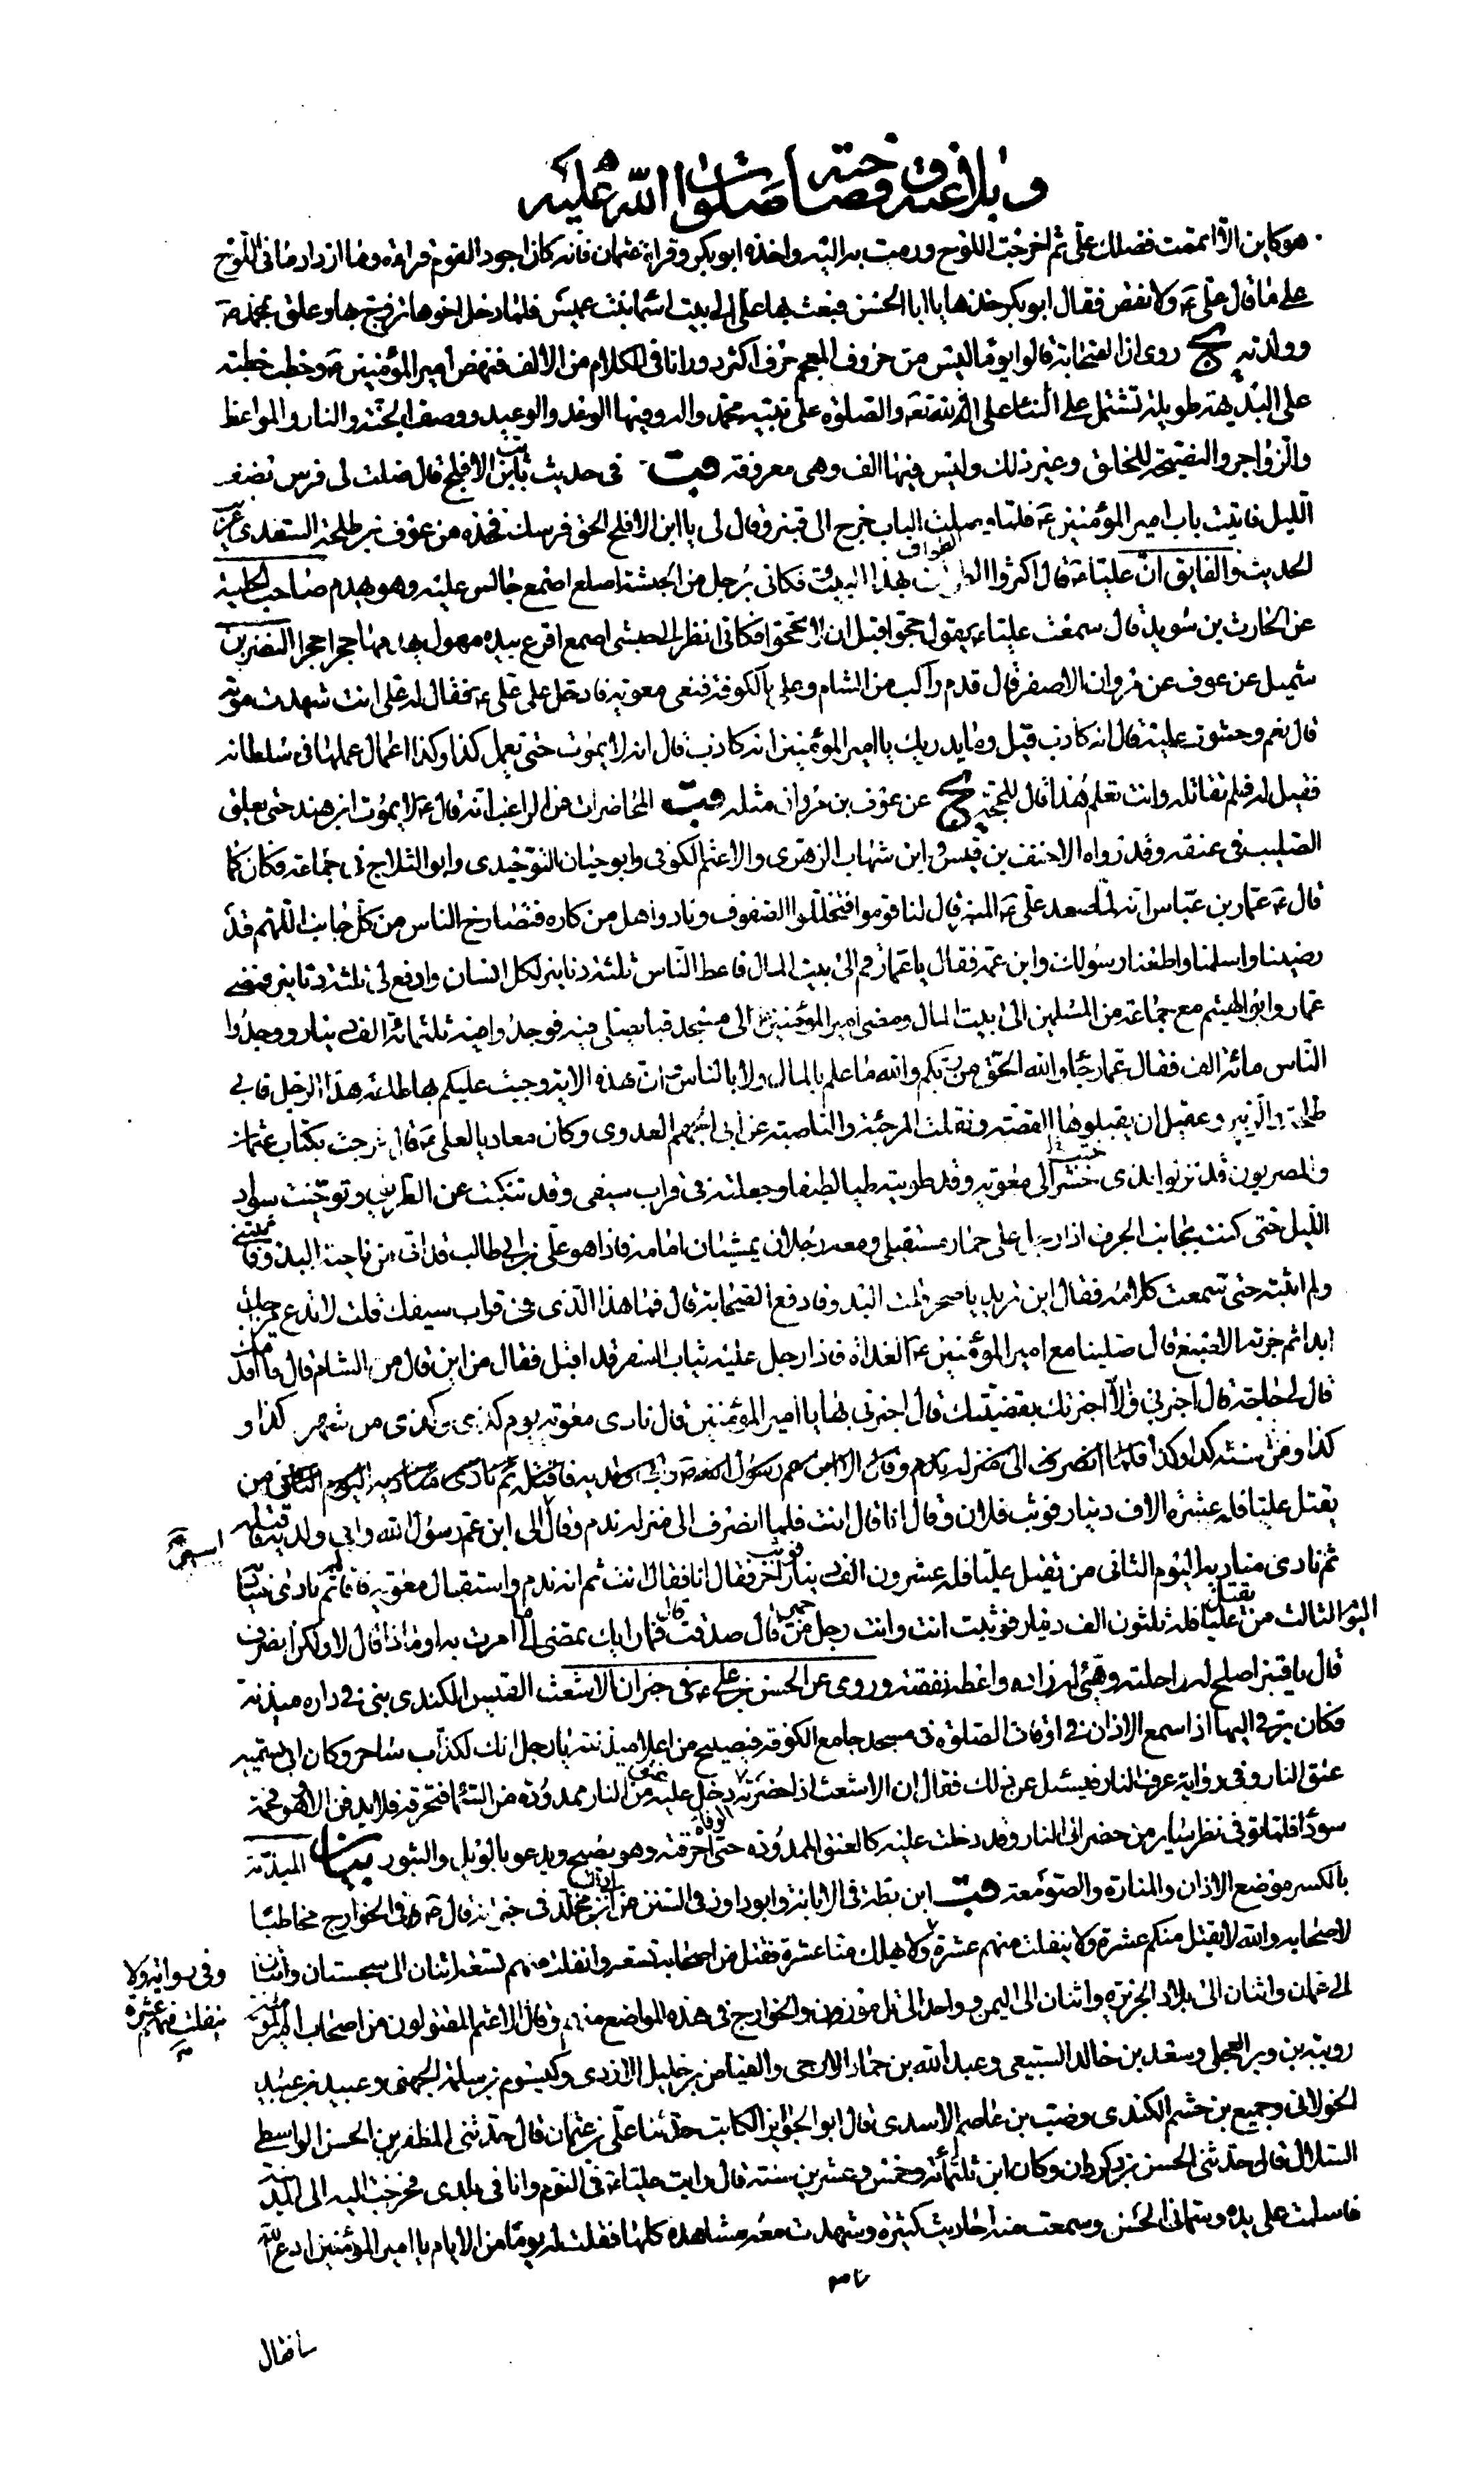 وبلاغته وفصاحته صلوات الله عليه
هو كاين الا اتممت فضلك على ثم اخرجت اللوح ورميت به اليه واخذه ابو بكر وقراه عثمان فانه كان اجود القوم قراءة وما ازداد ما في اللوح
على ما قال علي ع ولا نقص فقال ابو بكر خذها يا ابا الحسن فبعث بها علي الى بيت اسما بنت عميس فلما دخل اخوها تزوج بها وعلق بمحمد
وولدته يج روى ان الصحابة قالوا يوما ليس من حروف المعجم حرف اكثر دورانا في الكلام من الالف فنهض امير المؤمنين ع وخطب خطبته
على البديهة طويلة تشتمل على الثناء على الله تع والصلوة على نبيه محمد واله وفيها الوعد والوعيد ووصف الجنة والنار والمواعظ
والزواجر والنصيحة للخلق وغير ذلك وليس فيها الف وهي معروفة قب في حديث ثابت بن الافلج قال ضلت لي فرس نصف
الليل فاتيت باب امير المؤمنين ع فلما وصلت الباب خرج الي قنبر وقال لي يا ابن الافلج الحق فرسك فخذه من عوف بن طلحة السعدي غريب
الحديث والفايق ان عليا ع قال اكثروا الطواف بهذا البيت فكاني برجل من الحبشة اصلع اصمع جالس عليه وهو يهدم صاحب الحلية
عن الحارث بن سويد قال سمعت عليا ع يقول حجوا قبل ان لا تحجوا فكاني انظر الى حبشي اصمع اقرع بيده معول يهدمها حجرا حجرا النضر بن
شميل عن عوف عن مروان الاصفر قال قدم راكب من الشام وعلي بالكوفة فنعى معوية فادخل على علي ع فقال له علي انت شهدت موته
قال نعم وحثوت عليه قال انه كاذب قيل وما يدريك يا امير المؤمنين انه كاذب قال انه لا يموت حتى يعمل كذا وكذا اعمال عملها في سلطانه
فقيل له فلم تقاتله وانت تعلم هذا قال للحجة يج عن عوف بن مروان مثله قب المحاضرات عن الراغب انه قال ع لا يموت ابن هند حتى يعلق
الصليب في عنقه وقد رواه الاحنف بن قيس وابن شهاب الزهري والاعثم الكوفي وابو حيان التوحيدي وابو الثلاج في جماعة فكان كما
قال ع عمار بن عباس انه لما صعد علي ع المنبر قال لنا قوموا فتخللوا الصفوف ونادوا هل من كاره فتصارخ الناس من كل جانب اللهم قد
رضينا واسلمنا واطعنا رسولك وابن عمه فقال يا عمار قم الى بيت المال فاعط الناس ثلثة دنانير لكل انسان وادفع لي ثلثة دنانير فمضى
عمار وابو الهيثم مع جماعة من المسلمين الى بيت المال ومضى امير المؤمنين ع الى مسجد قبا يصلي فيه فوجدوا فيه ثلثمائة الف دينار ووجدوا
الناس مائة الف فقال عمار جاء والله الحق من ربكم والله ما علم بالمال ولا بالناس وان هذه الاية وجبت عليكم بها طاعة هذا الرجل فابى
طلحة والزبير وعقيل ان يقبلوها القصة ونقلت المرجئة والناصبة عن ابي الجهم العدوي وكان معاديا لعلي ع قال خرجت بكتاب عثمان
والمصريون قد نزلوا بذي خشب الى معوية وقد طويته طيا لطيفا وجعلته في قراب سيفي وقد تنكبت عن الطريق وتوخيت سواد
الليل حتى كنت بجانب الجرف اذا رجل على حمار مستقبلي ومعه رجلان يمشيان امامه فاذا هو علي بن ابي طالب قد اتى من ناحية البدو فاثبتني
ولم اثبته حتى سمعت كلامه فقال اين تريد يا صخر قلت البدو فادفع الصحابة قال فما هذا الذي في قراب سيفك قلت لا تدع مزاحك
ابدا ثم جزته الاصبغ قال صلينا مع امير المؤمنين ع الغداة فاذا رجل عليه ثياب السفر قد اقبل فقال من اين قال من الشام قال ما اقدمك
قال لي حاجة قال اخبرني والا اخبرتك بقضيتك قال اخبرني بها يا امير المؤمنين قال نادى معوية يوم كذا وكذا من شهر كذا و
كذا من سنة كذا وكذا
يقتل عليا فله عشرة الاف دينار فوثب فلان وقال انا قال انت فلما انصرف الى منزله ندم وقال اسير الى ابن عم رسول الله وابي ولديه فاقتله
ثم نادى مناديه اليوم الثاني من يقتل عليا فله عشرون الف دينار فوثب اخر فقال انا فقال انت ثم انه ندم واستقال معوية فاقاله ثم نادى مناديه
اليوم الثالث من يقتل عليا فله ثلثون الف دينار فوثبت انت وانت رجل من حمير قال صدقت قال فما رايك تمضي الى ما امرت به او ما ذا قال لا ولكن انصرف
قال يا قنبر اصلح له راحلته وهيئ له زاده واعطه نفقته وروي عن الحسن بن علي ع في خبر ان الاشعث القيس الكندي بنى في داره ميذنة
فكان يرقى اليها اذا سمع الاذان في اوقات الصلوة في مسجد جامع الكوفة فيصيح من اعلا ميذنته يا رجل انك لكذاب ساحر وكان ابي يسميه
عنق النار وفي رواية عرف النار فيسئل عن ذلك فقال ان الاشعث اذا حضرته الوفاة دخل عليه عنق من النار ممدودة من السماء فتحرقه فلا يدفن الا وهو فحمة
سوداء فلما توفي نظر سائر من حضر الى النار وقد دخلت عليه كالعنق الممدودة حتى احرقته وهو يصيح ويدعو بالويل والثبور بيان الميذنة
بالكسر موضع الاذان والمنارة والصومعة قب ابن بطة في الابانة وابو داود في السنن عن ابي مجلد في خبر انه قال ع في الخوارج مخاطبا
لاصحابه والله لا يقتل منكم عشرة ولا ينفلت منهم عشرة ولا يهلك منا عشرة فقتل من اصحابه تسعة وانفلت منهم تسعة اثنان الى سجستان واثنان
الى عمان واثنان الى بلاد الجزيرة واثنان الى اليمن وواحد الى تل موزن والخوارج في هذه المواضع منهم وقال الاعثم المقتولون من اصحاب امير المؤمنين
رويبة بن وبر العجلي وسعد بن خالد السبيعي وعبد الله بن حماد الارحبي والفياض بن خليل الازدي وكيسوم بن سلمة الجهني وعبيد بن عبيد
الخولاني وجميع بن جشم الكندي وضب بن عاصم الاسدي قال ابو الجوايز الكاتب حدثنا علي بن عثمان قال حدثني المظفر بن الحسن الواسطي
السلال قال حدثني الحسن بن ذكردان وكان ابن ثلثمائة وخمس وعشرين سنة قال رايت عليا ع في النوم وانا في بلدي فخرجت اليه الى المدينة
فاسلمت على يده وسماني الحسن وسمعت منه احاديث كثيرة وشهدت معه مشاهده كلها فقلت له يوما من الايام يا امير المؤمنين ادع الله
وفي رواية ولا
ينفلت منهم عشرة
فقال